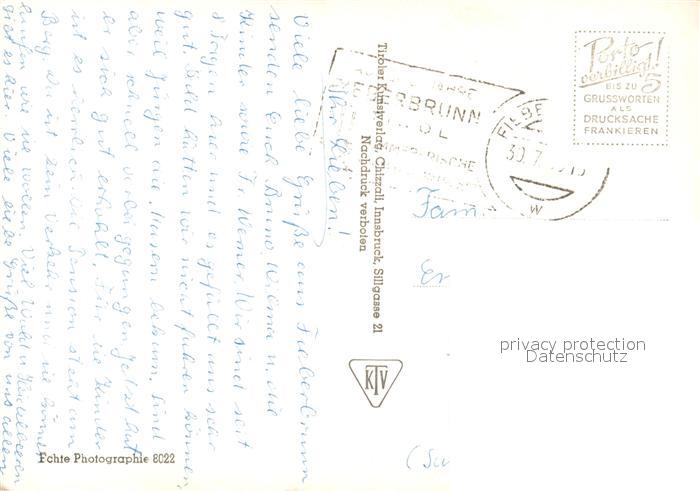 Ihr Lieben!
Viele liebe Grüße aus Fieberbrunn
senden Euch Bruno, Wilma u. die
Kinder sowie Fr. Werner. Wir sind seit
8 Tagen hier und es gefällt uns sehr
gut. Bald hätten wir nicht fahren können,
weil Jungen die Masern bekam. Sind
aber schnell vorbeigegangen, jetzt hat
er sich gut erholt. Für die Kinder
ist es herrlich die Pension steht am
Berg. Da ist kein Verkehr und sie können
laufen wie sie wollen. Viel Wald u. Heidelbeeren
gibt es hier. Viele liebe Grüße von uns allen
Echte Photographie 8022
Tiroler Kunstverlag, Chizzali, Innsbruck, Sillgasse 21
Nachdruck verboten
KTV
FIEBERBRUNN
TIROL
SOMMERFRISCHE
30.7
w
Porto
verbilligt!
5
BIS ZU
GRUSSWORTEN
ALS
DRUCKSACHE
FRANKIEREN
Fam.
privacy protection
Datenschutz